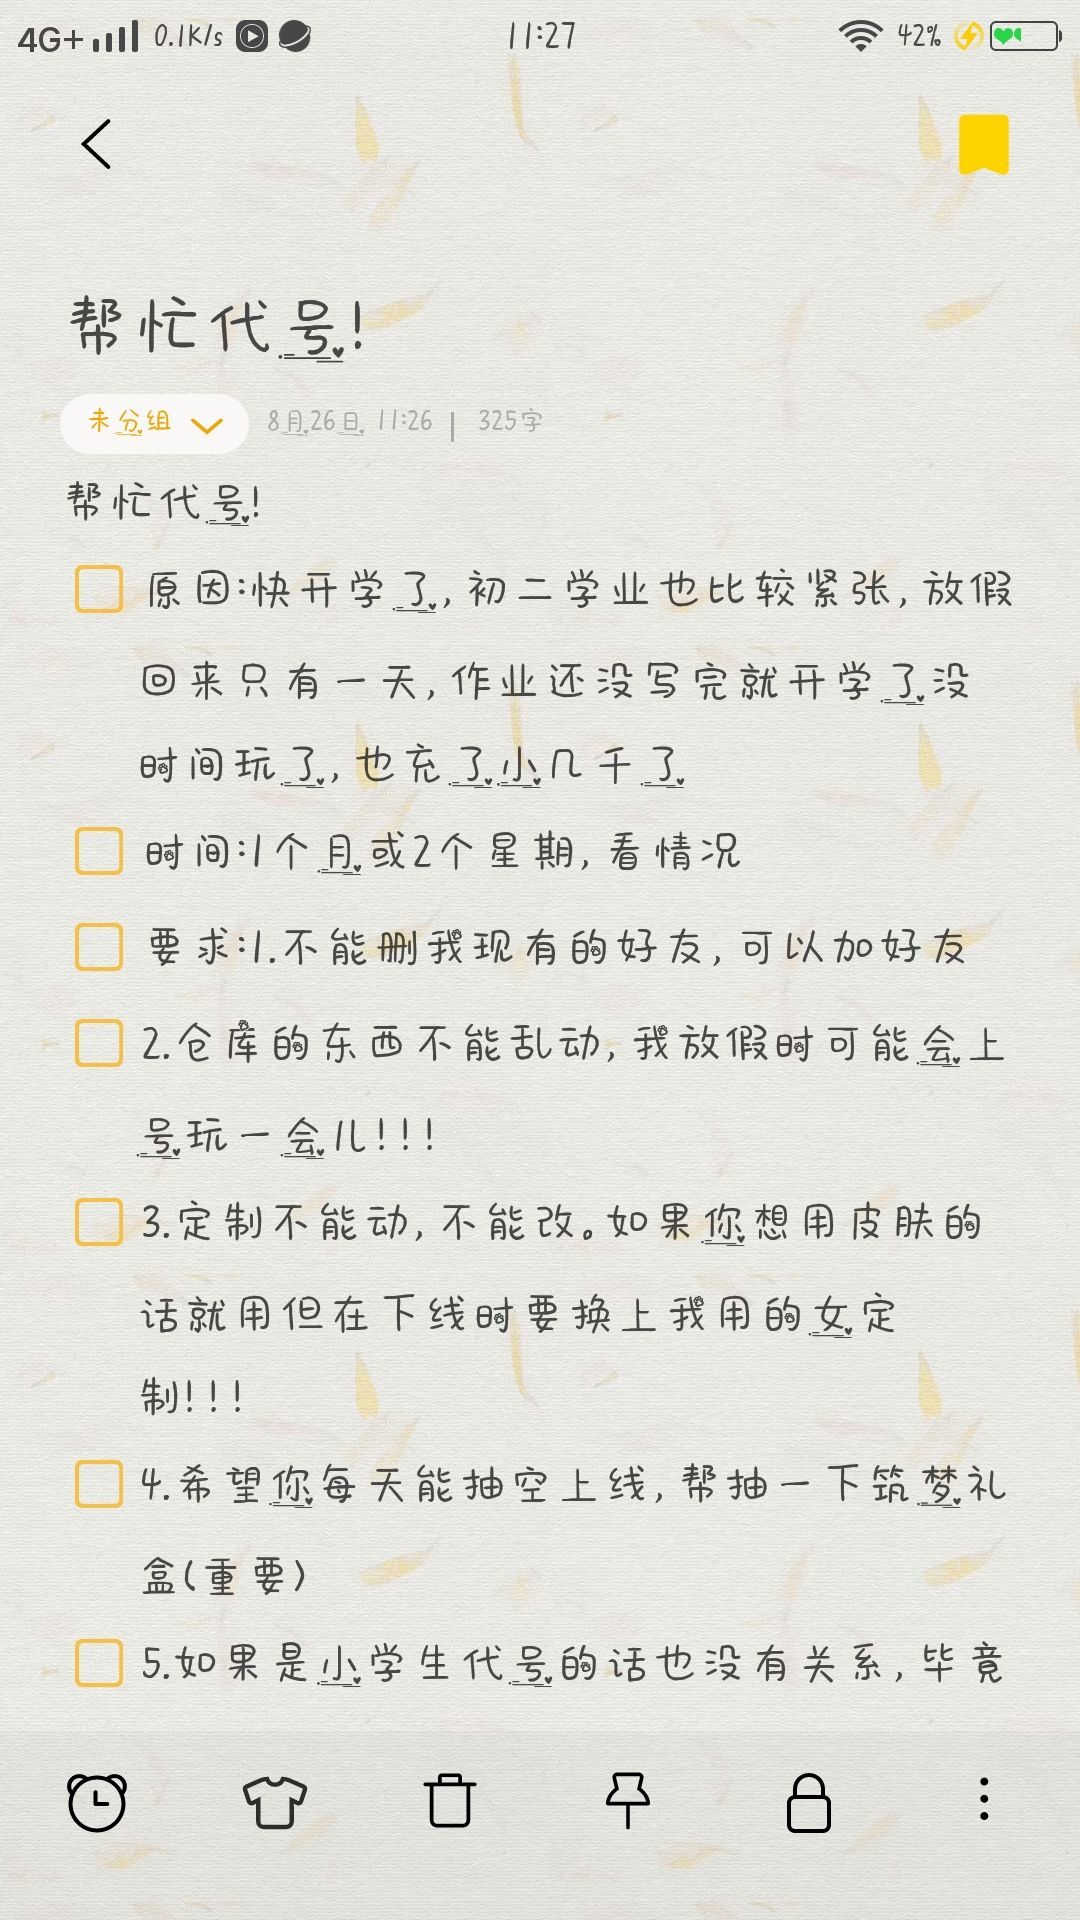 4G+ 0.1K/s 11:27 42%
帮忙代号!
未分组 8月26日 11:26 | 325字
帮忙代号!
原因:快开学了,初二学业也比较紧张,放假
回来只有一天,作业还没写完就开学了没
时间玩了,也充了小几千了
时间:1个月或2个星期,看情况
要求:1.不能删我现有的好友,可以加好友
2.仓库的东西不能乱动,我放假时可能会上
号玩一会儿!!!
3.定制不能动,不能改。如果你想用皮肤的
话就用但在下线时要换上我用的女定
制!!!
4.希望你每天能抽空上线,帮抽一下筑梦礼
盒(重要)
5.如果是小学生代号的话也没有关系,毕竟